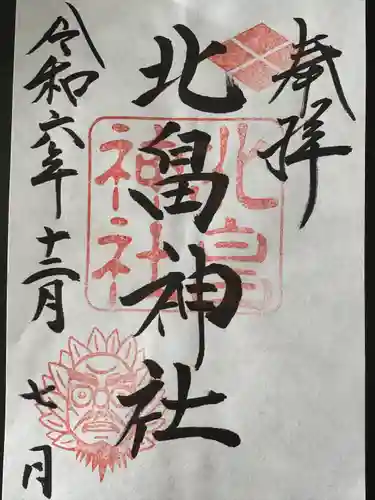 奉拝
北畠神社
北畠
神社
令和六年十二月
七月